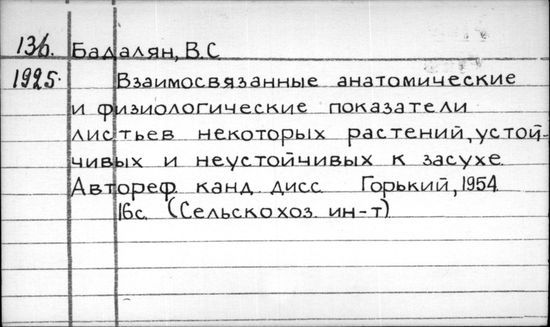 136. Бадалян, В.С
1925. Взаимосвязанные анатомические
и физиологические показатели
листьев некоторых растений, устой-
чивых и неустойчивых к засухе
Автореф. канд. дисс Горький, 1954.
16с. (Сельскохоз. ин-т)